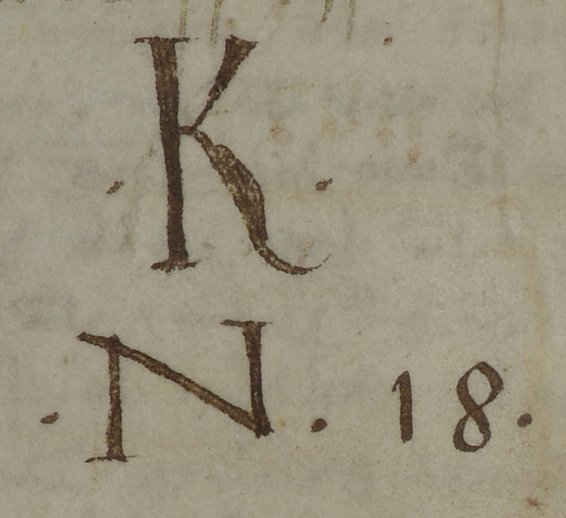 · K ·
· N · 18 ·